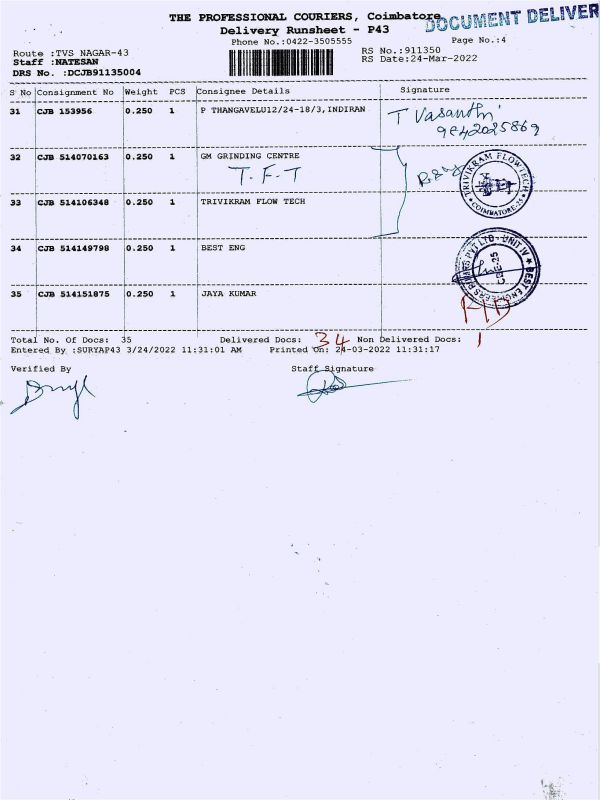 THE PROFESSIONAL COURIERS, Coimbatore
DOCUMENT DELIVER
Delivery Runsheet - P43
Phone No.:0422-3505555
Page No.:4
Route :TVS NAGAR-43
RS No.:911350
Staff :NATESAN
RS Date:24-Mar-2022
DRS No. :DCJB91135004
S No Consignment No Weight PCS Consignee Details Signature
31 CJB 153956 0.250 1 P THANGAVELU12/24-18/3,INDIRAN
T Vasanthi
9842025869
32 CJB 514070163 0.250 1 GM GRINDING CENTRE
T. F. T
TRIVIKRAM FLOW TECH
COIMBATORE-25
33 CJB 514106348 0.250 1 TRIVIKRAM FLOW TECH
34 CJB 514149798 0.250 1 BEST ENG
BEST ENGINEERS PUMPS PVT LTD - UNIT IV
CBE-25
35 CJB 514151875 0.250 1 JAYA KUMAR
Total No. Of Docs: 35 Delivered Docs: 34 Non Delivered Docs: 1
Entered By :SURYAP43 3/24/2022 11:31:01 AM Printed On: 24-03-2022 11:31:17
Verified By Staff Signature